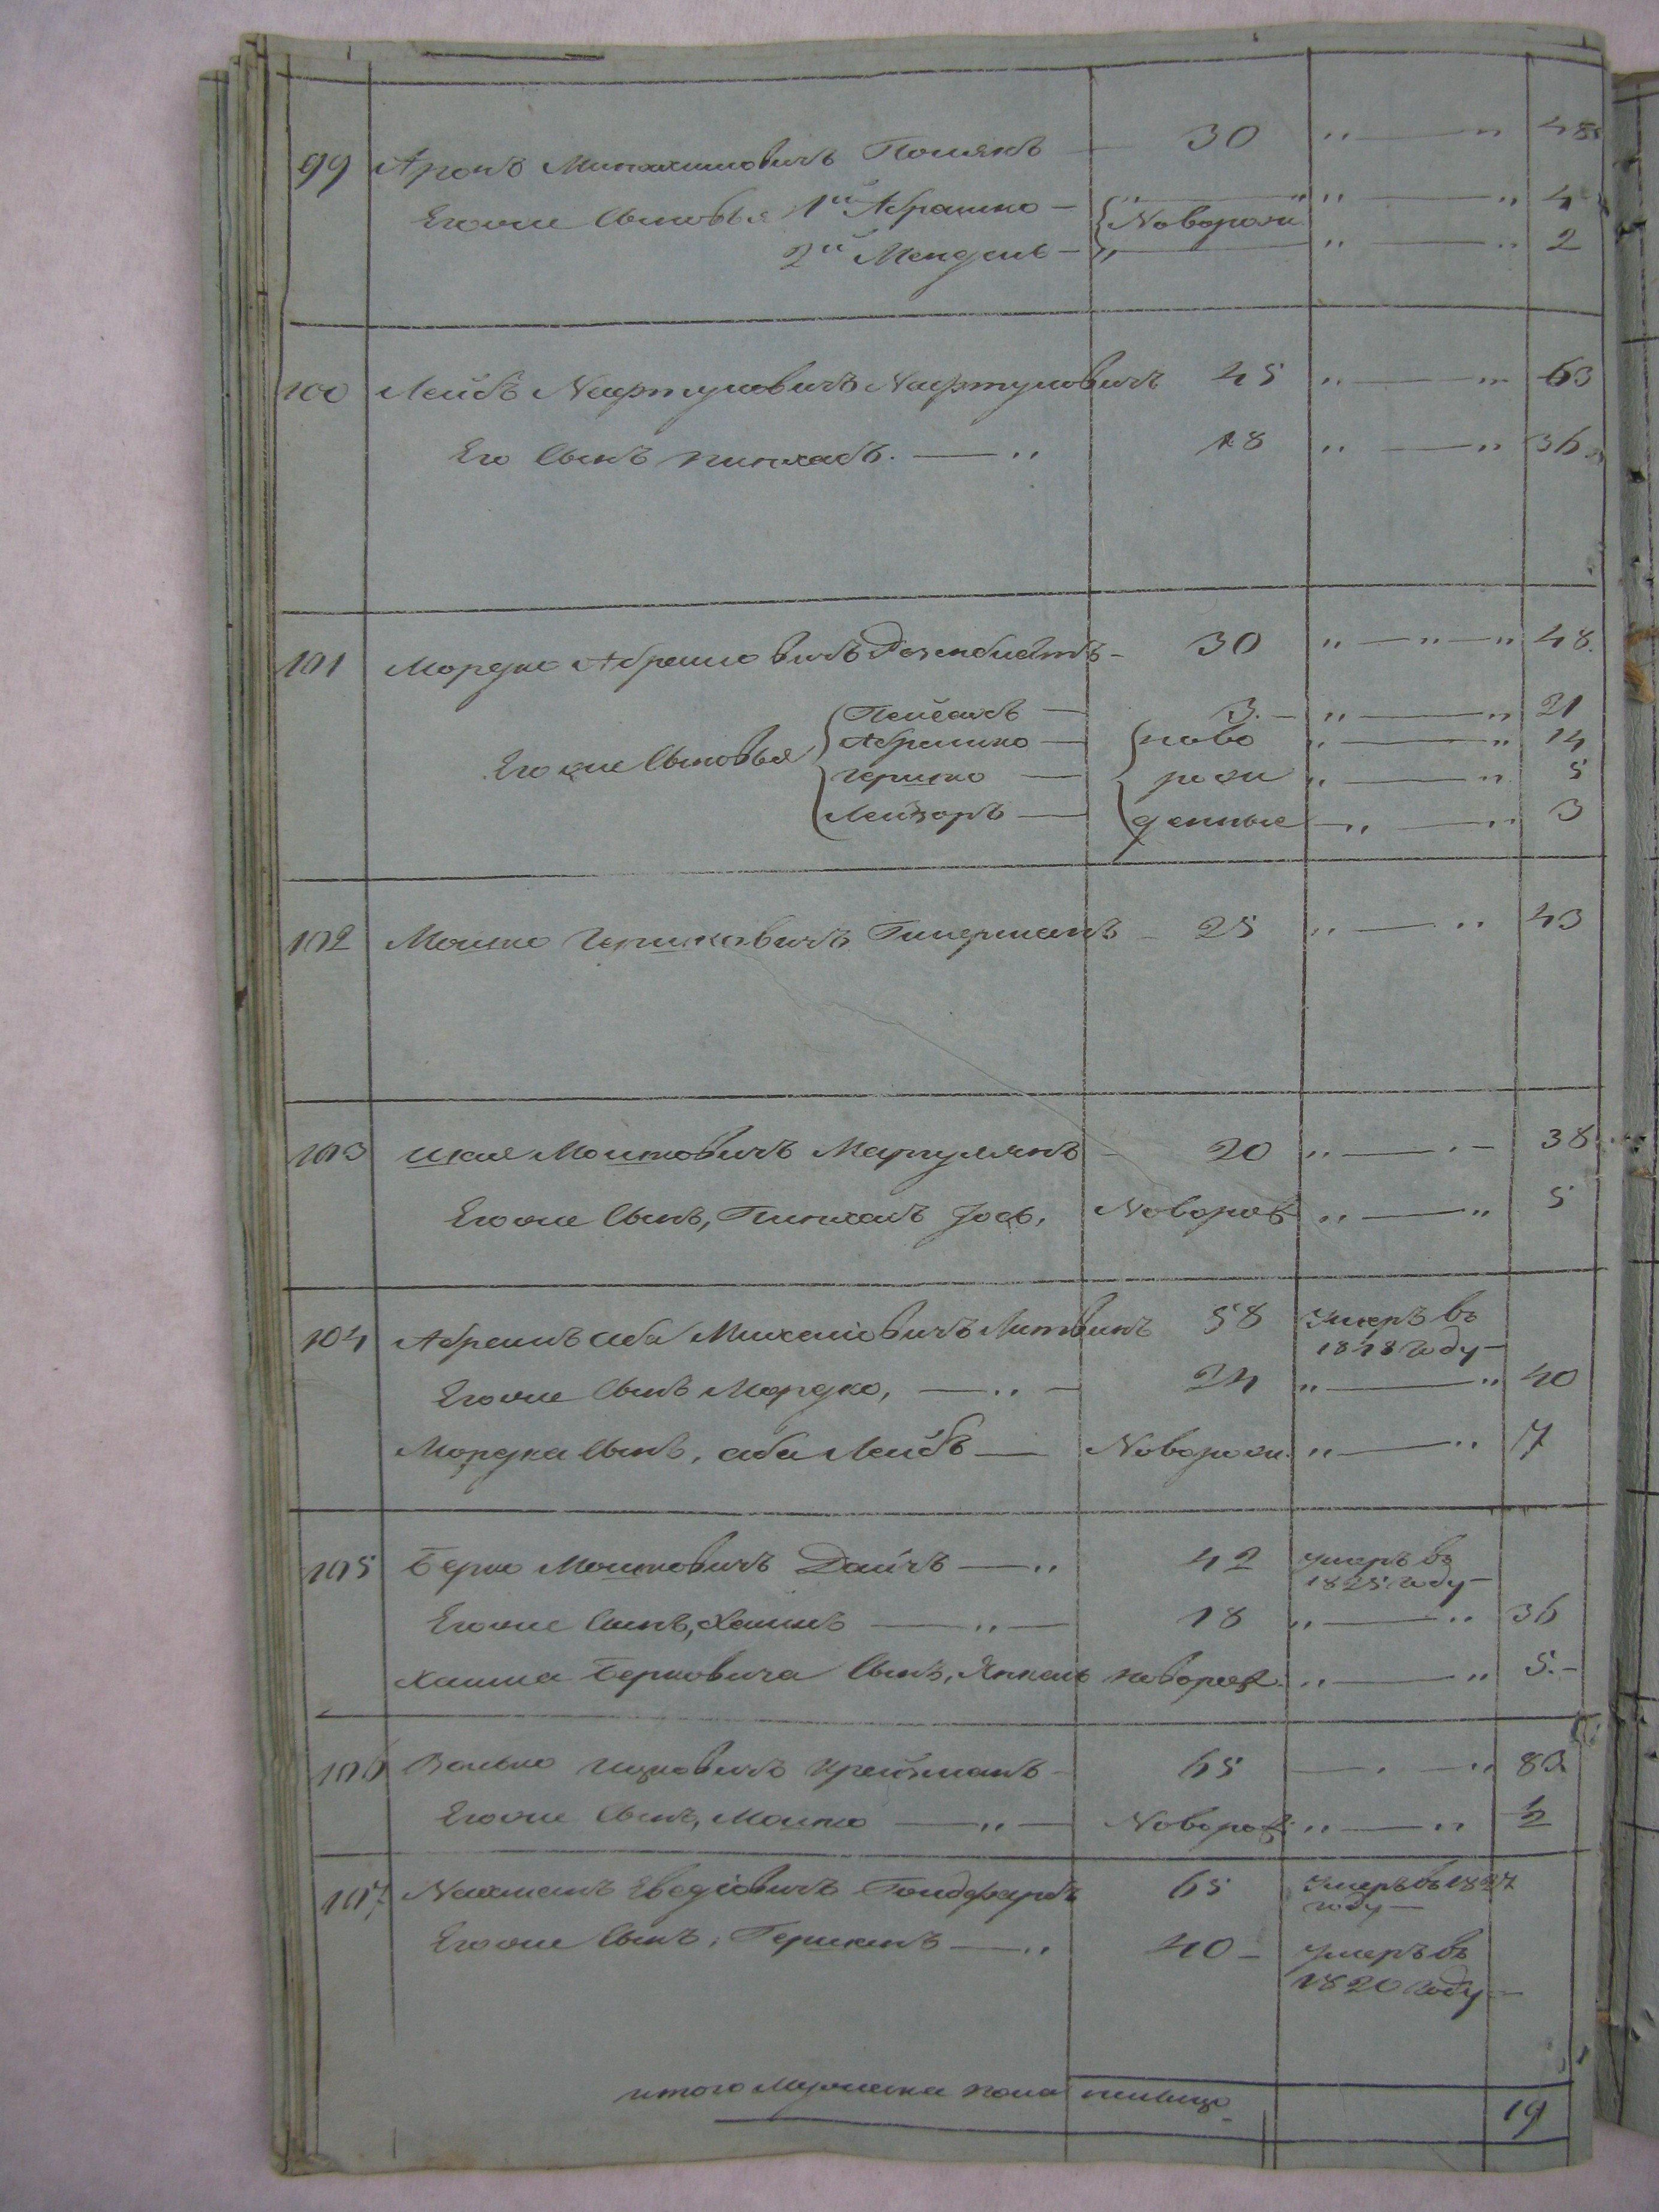 99 Аронъ Минахимовичъ Полякъ — 30 „ — „ 48
Егоже Сыновья 1й Абрашко — „ — „ „ — „ 4
Новорож.
2й Мендель — „ — „ — „ 2
100 Лейбъ Нафтуловичъ Нафтуловичъ 45 „ — „ 63
Его Сынъ пинхасъ. — „ 18 „ — „ 36
101 Мордко Абрамовичъ Розенблатъ — 30 „ — „ — „ 48.
Пейсахъ — 3. — „ — „ 21
Егоже Сыновья Абрашко — ново „ — „ 14
гершко — рож „ — „ 5
Лейзоръ — денные — „ — „ 3
102 Мошко Гершковичъ Гиперманъ — 25 „ — „ 43
103 шая Мошковичъ Маргулянъ — 20 „ — „ — 38
Егоже Сынъ, Пинхасъ Іось, Новорож „ — „ 5
104 Абрамъ аба Михелiовичъ Литвинъ 58 Умеръ въ
1818 году —
Егоже Сынъ Мордко, — „ — 24 „ — „ 40
Мордка Сынъ, аба Лейбъ — Новорож. „ — „ 7
105 Берко Мошковичъ Дайчъ — „ 42 умеръ въ
1825 году —
Егоже Сынъ, Хаимъ — „ — 18 „ — „ 36
Хаима Берковича Сынъ, Янкель новорож. „ — „ 5. —
106 Волько Ицковичъ Крейзманъ — 65 — „ — „ 83
Егоже Сынъ, Мошко — „ — Новорож. „ — „ 1/2
107 Нахманъ Еведiовичъ Голдфарбъ 65 Умеръ въ 1827
году —
Егоже Сынъ, — „ 40 — умеръ въ
1820 году —
итого Мужеска пола налицо 19